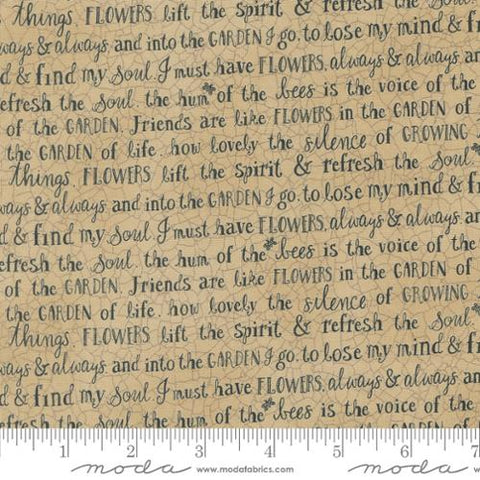 things. FLOWERS lift the Spirit & refresh the Soul.
ways & always. and into the GARDEN I go. to lose my mind &
d & find my Soul. I must have FLOWERS, always & always. an
efresh the Soul. the hum of the bees is the voice of the
of the GARDEN. Friends are like FLOWERS in the GARDEN of
the GARDEN of life. how lovely the silence of GROWING
things. FLOWERS lift the Spirit & refresh the Soul.
ways & always. and into the GARDEN I go. to lose my mind &
d & find my Soul. I must have FLOWERS, always & always. an
efresh the Soul. the hum of the bees is the voice of the
of the GARDEN. Friends are like FLOWERS in the GARDEN of
the GARDEN of life. how lovely the silence of GROWING
things. FLOWERS lift the Spirit & refresh the Soul.
ways & always. and into the GARDEN I go. to lose my mind &
d & find my Soul. I must have FLOWERS, always & always. an
efresh the Soul. the hum of the bees is the voice of the
1 2 3 4 5 6 7
moda www.modafabrics.com moda